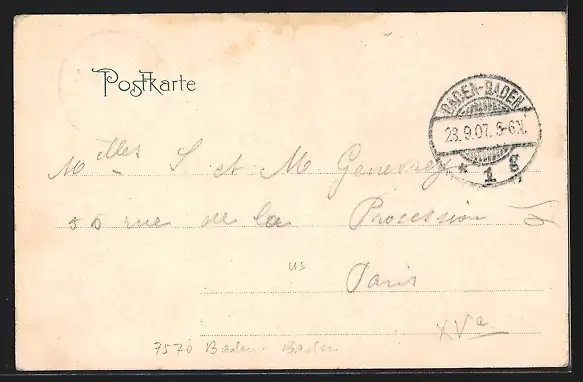 Postkarte
BADEN-BADEN
23.9.07. 5-6N.
* 1 g
Melles S. et M. Genevrey
55 rue de la Procession
Paris
XVe
7570 Baden-Baden